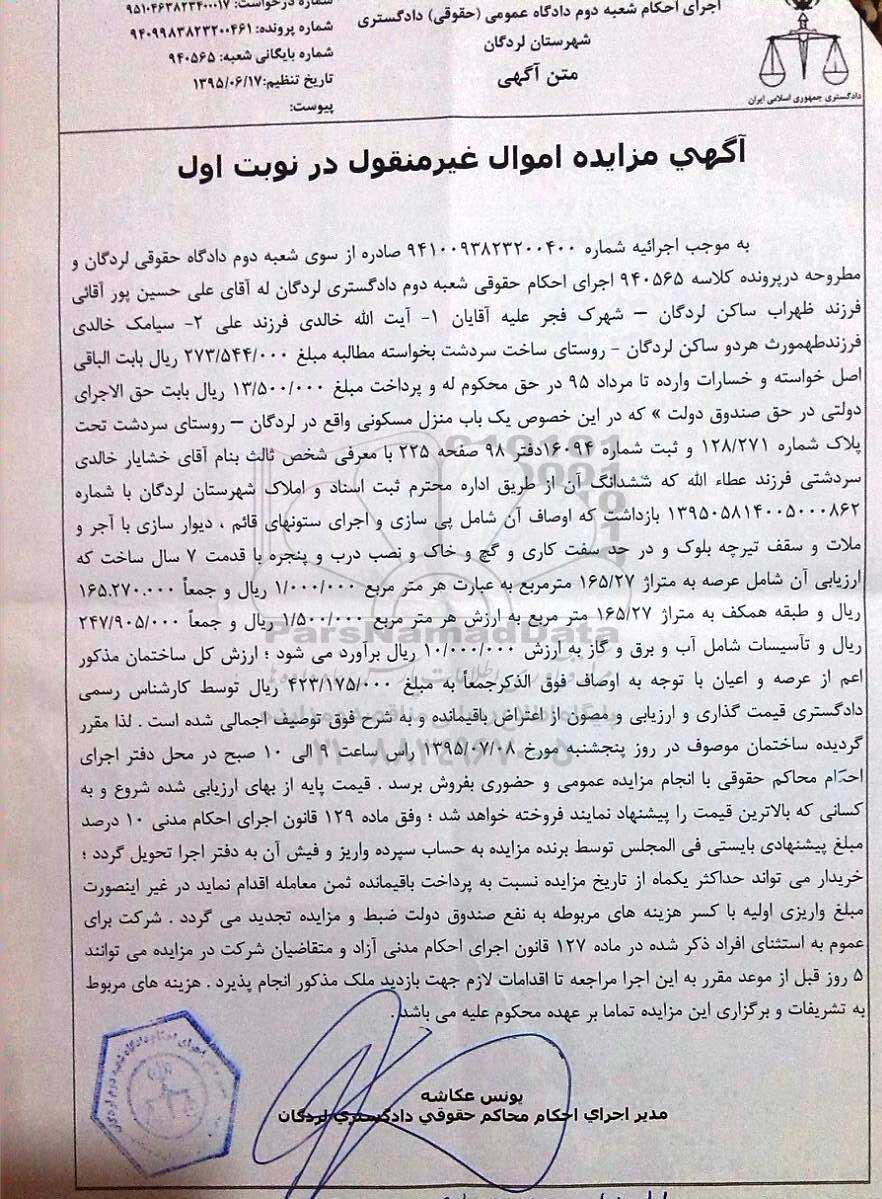 اجرای احکام شعبه دوم دادگاه عمومی (حقوقی) دادگستری
شهرستان لردگان
متن آگهی
شماره درخواست: ۹۵۱۰۴۶۳۸۲۳۴۰۰۰۱۷
شماره پرونده: ۹۴۰۹۹۸۳۸۲۳۲۰۰۴۶۱
شماره بایگانی شعبه: ۹۴۰۵۶۵
تاریخ تنظیم: ۱۳۹۵/۰۶/۱۷
پیوست:
دادگستری جمهوری اسلامی ایران
آگهي مزايده اموال غيرمنقول در نوبت اول
به موجب اجرائیه شماره ۹۴۱۰۰۹۳۸۲۳۲۰۰۴۰۰ صادره از سوی شعبه دوم دادگاه حقوقی لردگان و
مطروحه درپرونده کلاسه ۹۴۰۵۶۵ اجرای احکام حقوقی شعبه دوم دادگستری لردگان له آقای علی حسین پور آقائی
فرزند ظهراب ساکن لردگان – شهرک فجر علیه آقایان ۱- آیت الله خالدی فرزند علی ۲- سیامک خالدی
فرزندطهمورث هردو ساکن لردگان - روستای ساخت سردشت بخواسته مطالبه مبلغ ۲۷۳/۵۴۴/۰۰۰ ریال بابت الباقی
اصل خواسته و خسارات وارده تا مرداد ۹۵ در حق محکوم له و پرداخت مبلغ ۱۳/۵۰۰/۰۰۰ ریال بابت حق الاجرای
دولتی در حق صندوق دولت » که در این خصوص یک باب منزل مسکونی واقع در لردگان – روستای سردشت تحت
پلاک شماره ۱۲۸/۲۷۱ و ثبت شماره ۱۶۰۹۴دفتر ۹۸ صفحه ۲۲۵ با معرفی شخص ثالث بنام آقای خشایار خالدی
سردشتی فرزند عطاء الله که ششدانگ آن از طریق اداره محترم ثبت اسناد و املاک شهرستان لردگان با شماره
۱۳۹۵۰۵۸۱۴۰۰۵۰۰۰۸۶۲ بازداشت که اوصاف آن شامل پی سازی و اجرای ستونهای قائم ، دیوار سازی با آجر و
ملات و سقف تیرچه بلوک و در حد سفت کاری و گچ و خاک و نصب درب و پنجره با قدمت ۷ سال ساخت که
ارزیابی آن شامل عرصه به متراژ ۱۶۵/۲۷ مترمربع به عبارت هر متر مربع ۱/۰۰۰/۰۰۰ ریال و جمعاً ۱۶۵.۲۷۰.۰۰۰
ریال و طبقه همکف به متراژ ۱۶۵/۲۷ متر مربع به ارزش هر متر مربع ۱/۵۰۰/۰۰۰ ریال و جمعاً ۲۴۷/۹۰۵/۰۰۰
ریال و تأسیسات شامل آب و برق و گاز به ارزش ۱۰/۰۰۰/۰۰۰ ریال برآورد می شود ؛ ارزش کل ساختمان مذکور
اعم از عرصه و اعیان با توجه به اوصاف فوق الذکرجمعاً به مبلغ ۴۲۳/۱۷۵/۰۰۰ ریال توسط کارشناس رسمی
دادگستری قیمت گذاری و ارزیابی و مصون از اعتراض باقیمانده و به شرح فوق توصیف اجمالی شده است . لذا مقرر
گردیده ساختمان موصوف در روز پنجشنبه مورخ ۱۳۹۵/۰۷/۰۸ راس ساعت ۹ الی ۱۰ صبح در محل دفتر اجرای
احکام محاکم حقوقی با انجام مزایده عمومی و حضوری بفروش برسد . قیمت پایه از بهای ارزیابی شده شروع و به
کسانی که بالاترین قیمت را پیشنهاد نمایند فروخته خواهد شد ؛ وفق ماده ۱۲۹ قانون اجرای احکام مدنی ۱۰ درصد
مبلغ پیشنهادی بایستی فی المجلس توسط برنده مزایده به حساب سپرده واریز و فیش آن به دفتر اجرا تحویل گردد ؛
خریدار می تواند حداکثر یکماه از تاریخ مزایده نسبت به پرداخت باقیمانده ثمن معامله اقدام نماید در غیر اینصورت
مبلغ واریزی اولیه با کسر هزینه های مربوطه به نفع صندوق دولت ضبط و مزایده تجدید می گردد . شرکت برای
عموم به استثنای افراد ذکر شده در ماده ۱۲۷ قانون اجرای احکام مدنی آزاد و متقاضیان شرکت در مزایده می توانند
۵ روز قبل از موعد مقرر به این اجرا مراجعه تا اقدامات لازم جهت بازدید ملک مذکور انجام پذیرد . هزینه های مربوط
به تشریفات و برگزاری این مزایده تماما بر عهده محکوم علیه می باشد .
یونس عکاشه
مدیر اجراي احکام محاکم حقوقي دادگستري لردگان
ParsNamadData